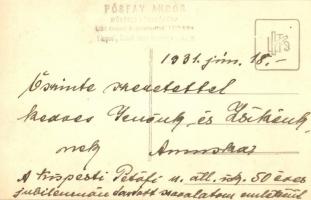 PÓSFAY ANDOR
1931. jún. 18.-
Őszinte szeretettel
kedves Jenőnk és Zsikénk-
nek Annuska
A Kispesti Petőfi u. áll. isk. 50 éves
jubileumán tartott szavalatom emlékéül